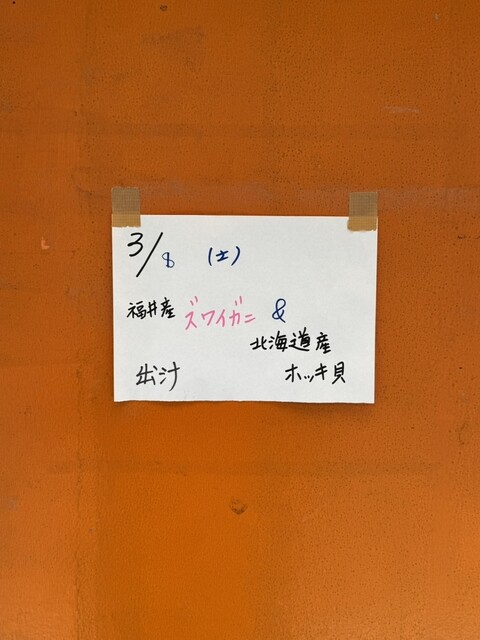 3/8 (土)
福井産 ズワイガニ &
北海道産
出汁 ホッキ貝